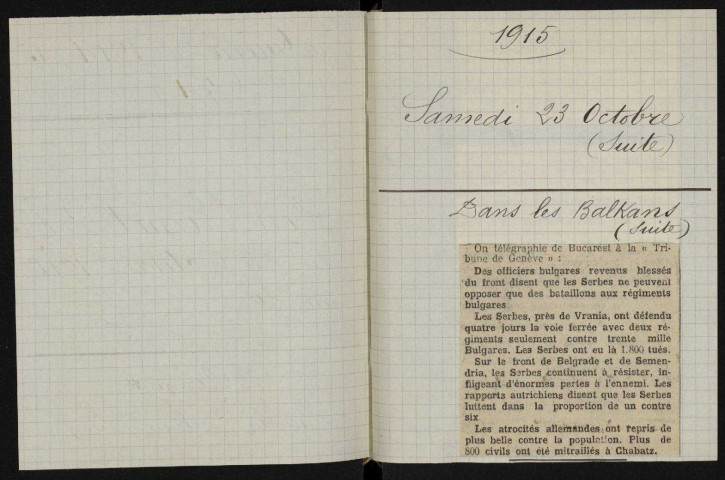 1915
Samedi 23 Octobre
(Suite)
Dans les Balkans
(Suite)
On télégraphie de Bucarest à la « Tri-
bune de Genève » :
Des officiers bulgares revenus blessés
du front disent que les Serbes ne peuvent
opposer que des bataillons aux régiments
bulgares
Les Serbes, près de Vrania, ont défendu
quatre jours la voie ferrée avec deux ré-
giments seulement contre trente mille
Bulgares. Les Serbes ont eu là 1.800 tués.
Sur le front de Belgrade et de Semen-
dria, les Serbes continuent à résister, in-
fligeant d'énormes pertes à l'ennemi. Les
rapports autrichiens disent que les Serbes
luttent dans la proportion de un contre
six
Les atrocités allemandes ont repris de
plus belle contre la population. Plus de
800 civils ont été mitraillés à Chabatz.